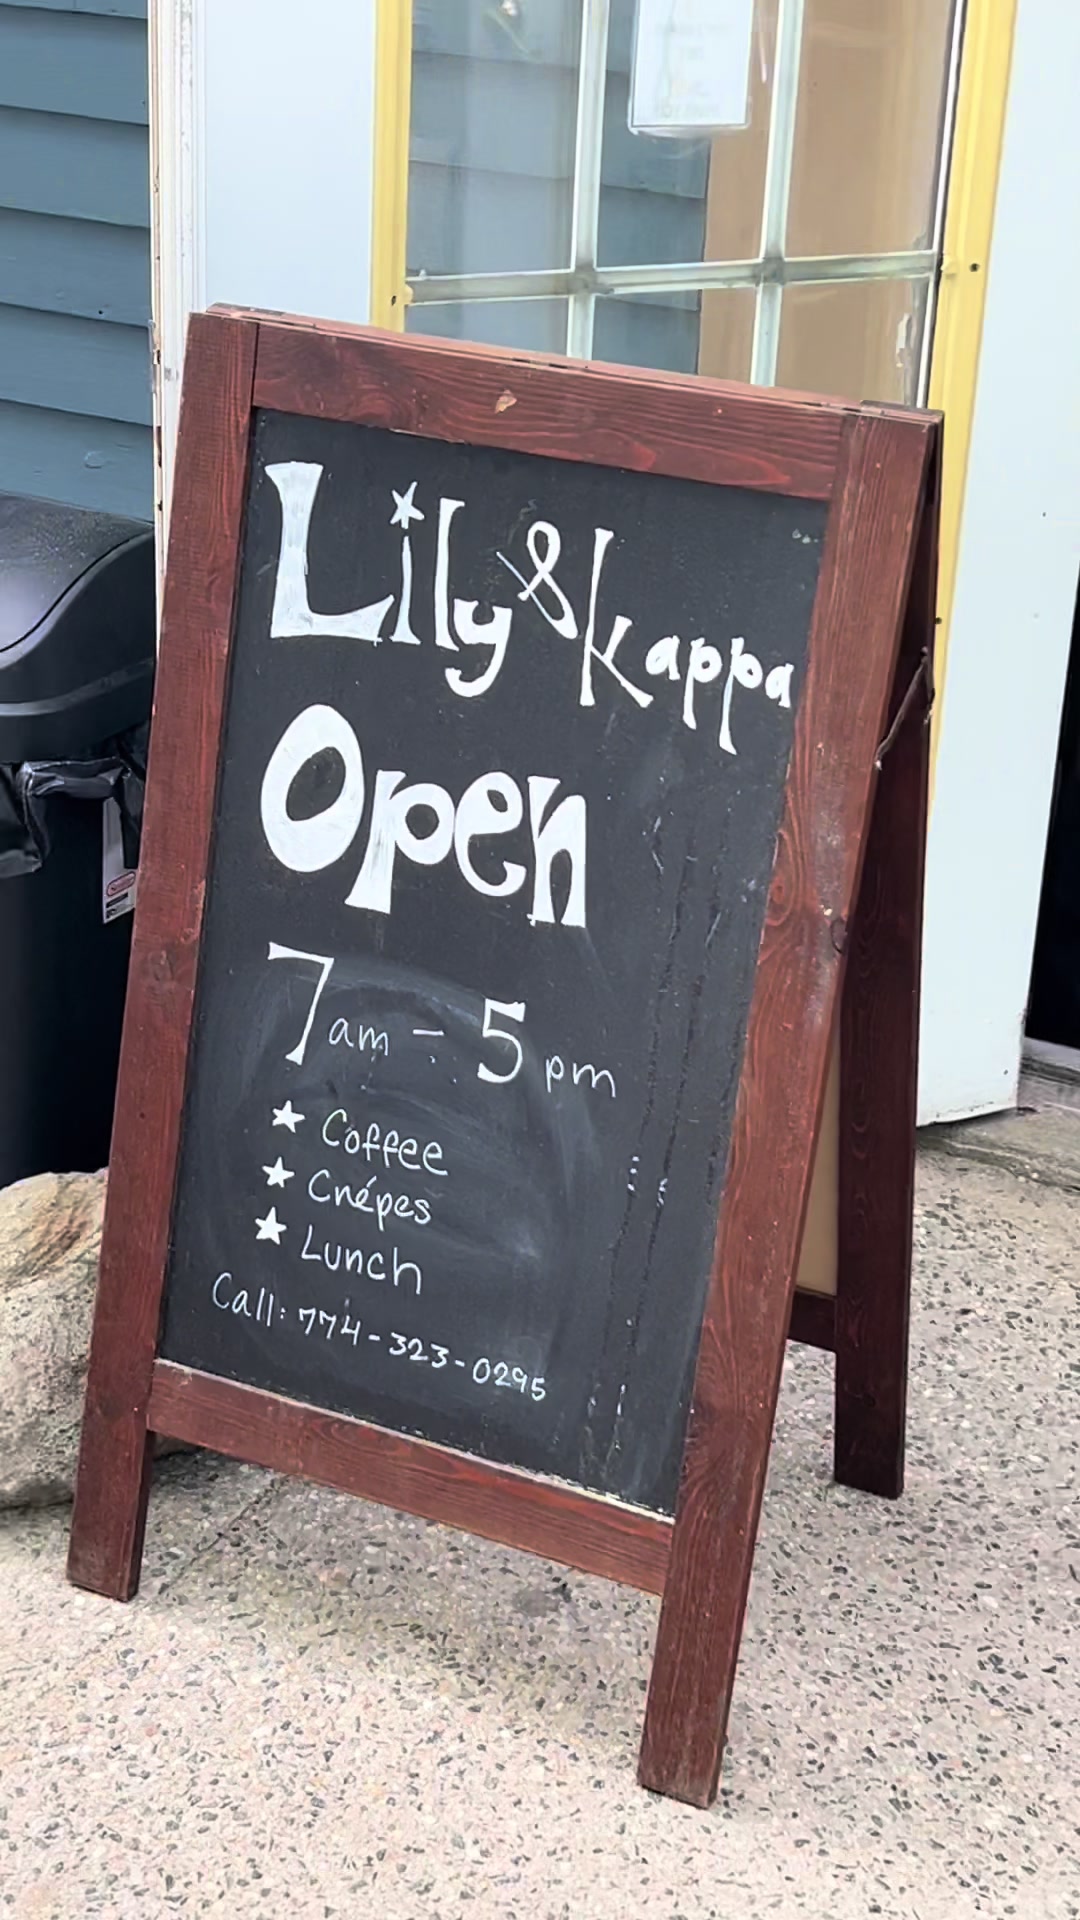 Lily & Kappa
Open
7am - 5pm
★ Coffee
★ Crépes
★ Lunch
Call: 774-323-0295